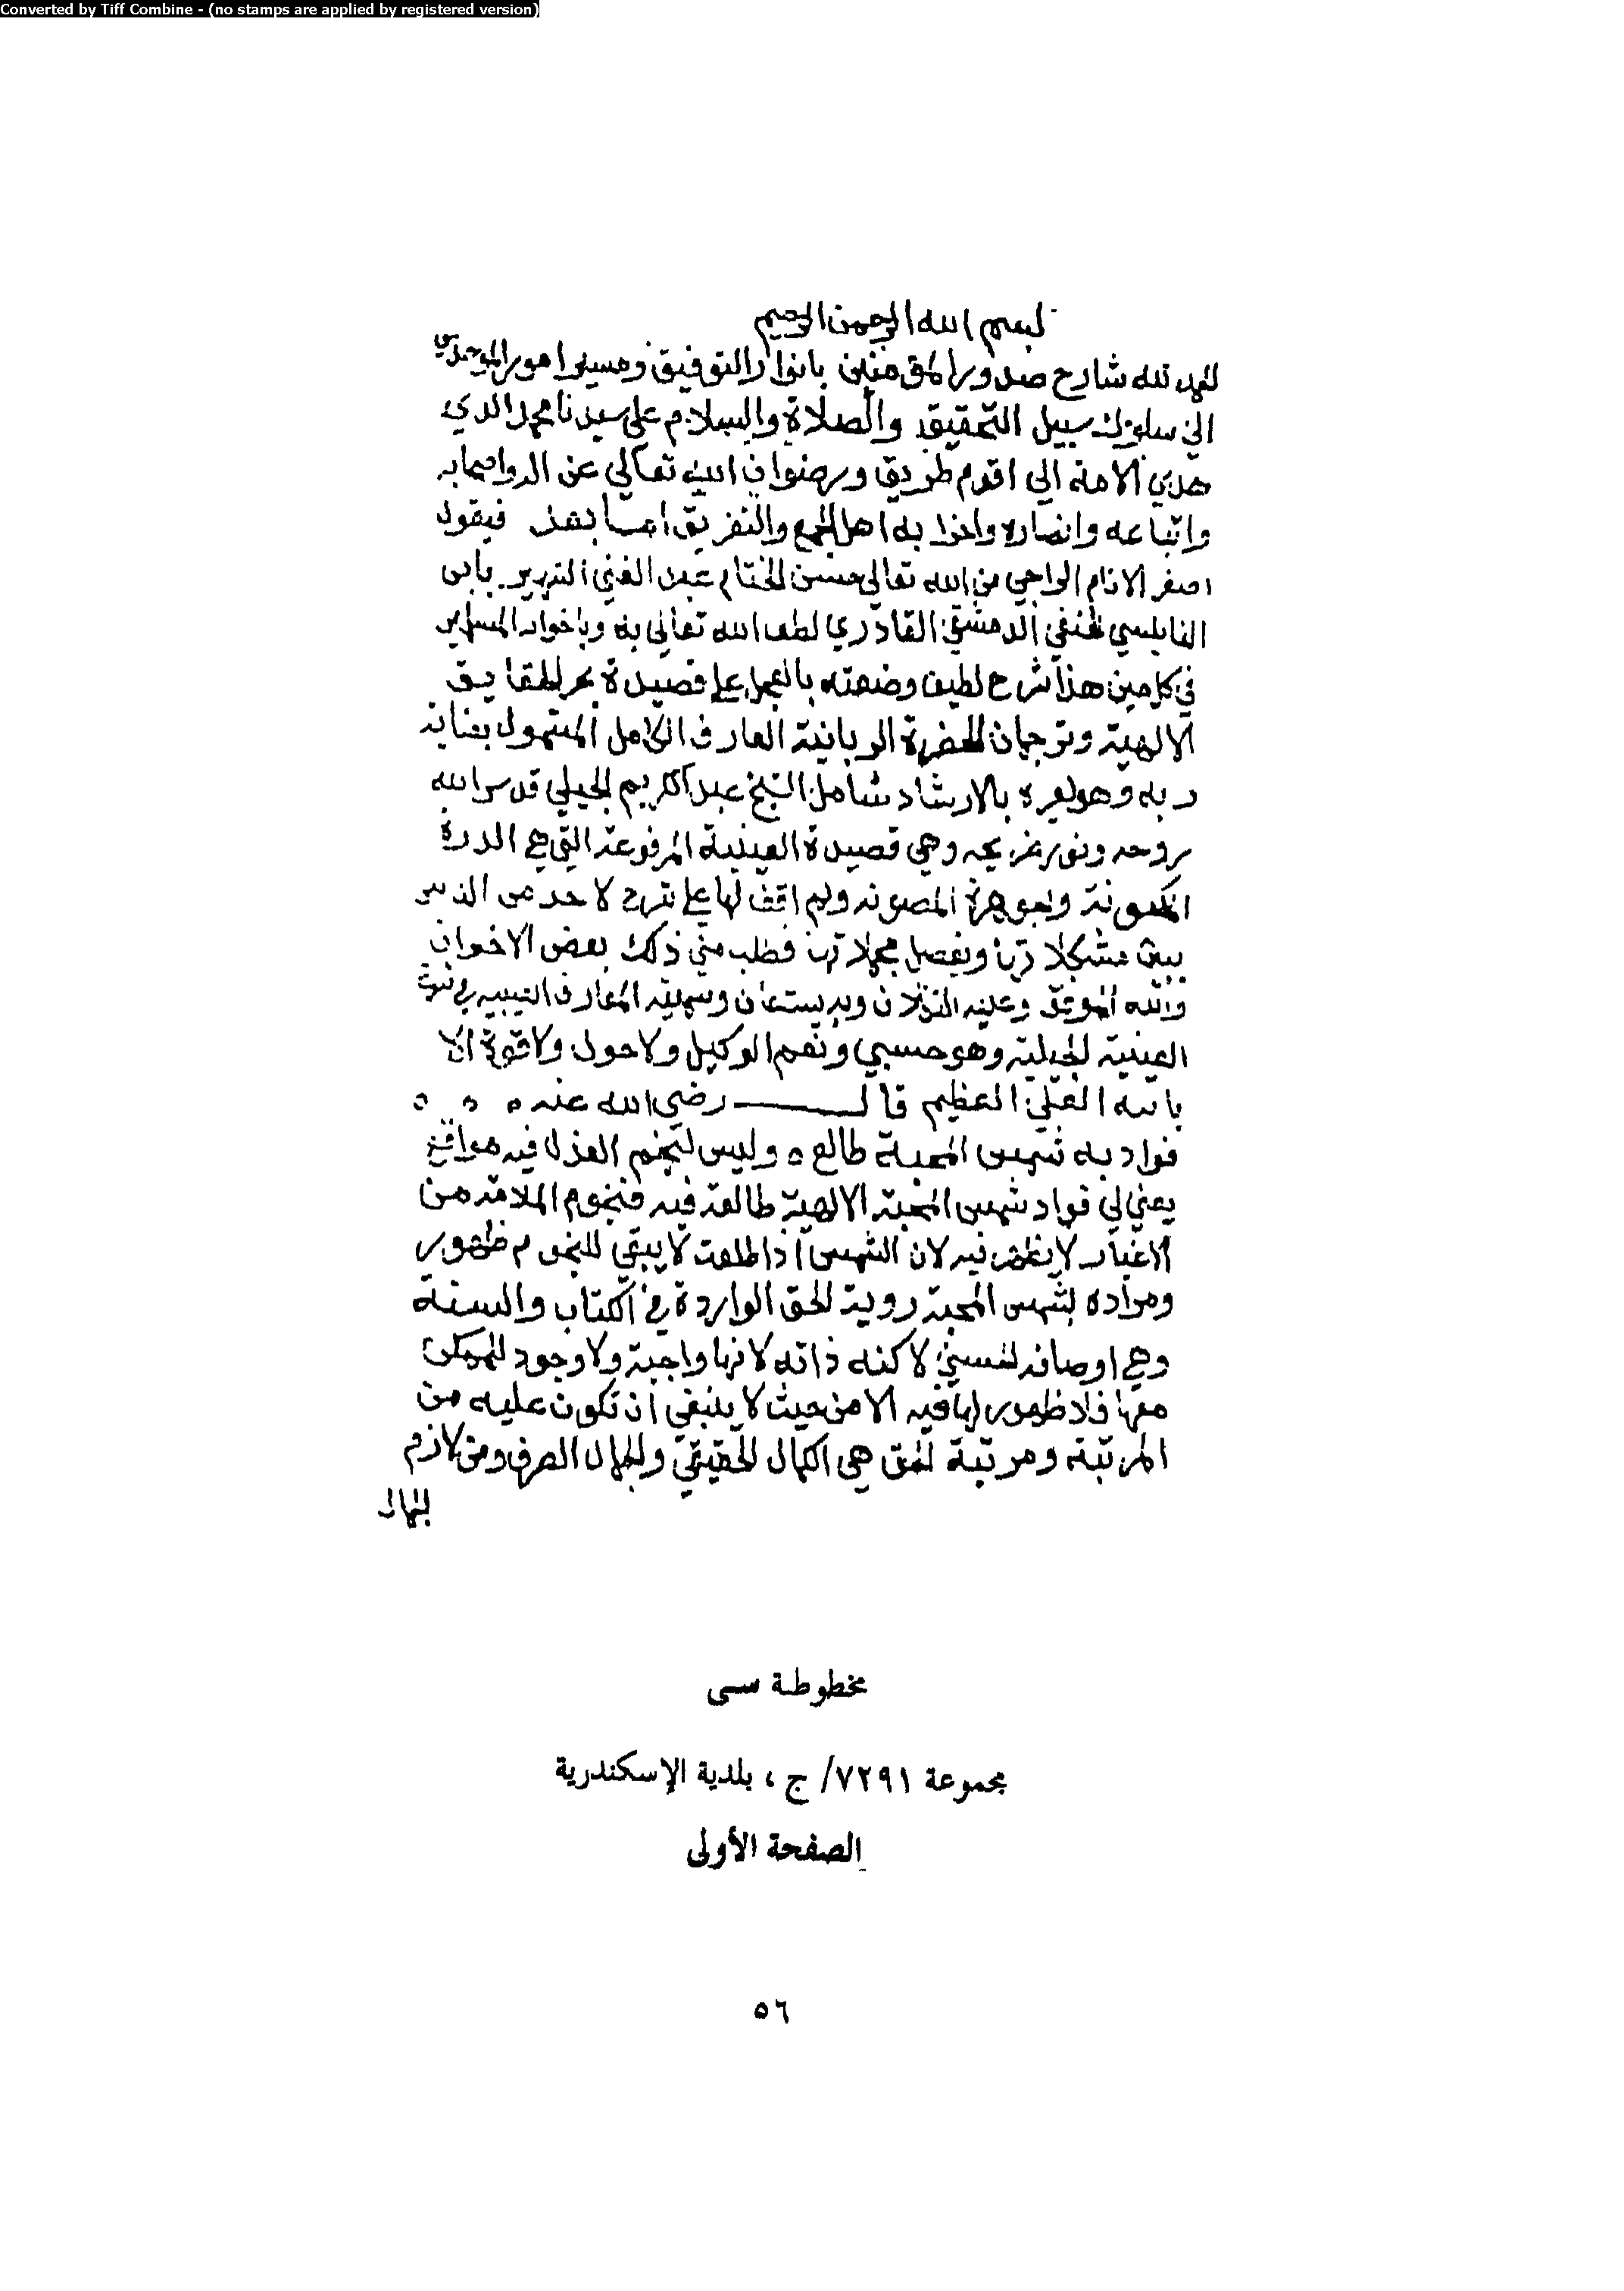 Converted by Tiff Combine - (no stamps are applied by registered version)
بسم الله الرحمن الرحيم
الحمد لله شارح صدور المؤمنين بانوار التوفيق وميسر امور الموحدين
الى سلوك سبيل التحقيق والصلاة والسلام على سيدنا محمد الذي
هدى الامة الى اقوم طريق ورضوان الله تعالى عن اله واصحابه
واتباعه وانصاره واحزابه اهل الجمع والتفريق اما بعد فيقول
اصغر الانام الراجي من الله تعالى حسن الختام عبد الغني الشهير بابن
النابلسي الحنفي الدمشقي القادري لطف الله تعالى به وباخوانه المسلمين
في كل حين هذا شرح لطيف وضعته بالعجل على قصيدة بحر الحقايق
الالهية وترجمان الحضرة الربانية العارف الكامل المشمول بعناية
ربه وهو لغيره بالارشاد شامل الشيخ عبد الكريم الجيلي قدس الله
روحه ونور ضريحه وهي قصيدة العينية المرفوعة التي هي الدرة
المكنونة والجوهرة المصونه ولم اقف لها على شرح لاحد من الناس
يبين مشكلاتها ويفصل مجملاتها فطلب مني ذلك بعض الاخوان
والله الموفق وعليه التكلان وبه يستعان وسميته المعارف الغيبيه في شرح
العينية الجيلية وهو حسبي ونعم الوكيل ولا حول ولا قوة الا
بالله العلي العظيم قال رضي الله عنه ه ه ه
فواد به شمس المحبة طالع ه وليس لنجم العذل فيه مواقع
يعني لي فواد شمس المحبة الالهية طالعة فيه فنجوم الملامة من
الاغيار لا تظهر فيه لان الشمس اذا طلعت لا يبقى للنجوم ظهور
ومراده بشمس المحبة روية الحق الواردة في الكتاب والسنة
وهي اوصافه لنفسه لا كنه ذاته لانها واجبة ولا وجود للممكن
معها فلا ظهور لها فيه الا من حيث لا ينبغي ان تكون عليه من
المرتبة ومرتبة الحق هي الكمال الحقيقي والجمال الصرف ومن لازم
الجمال
مخطوطة سى
مجموعة ٧٢٩١/ ج ، بلدية الإسكندرية
الصفحة الأولى
٥٦